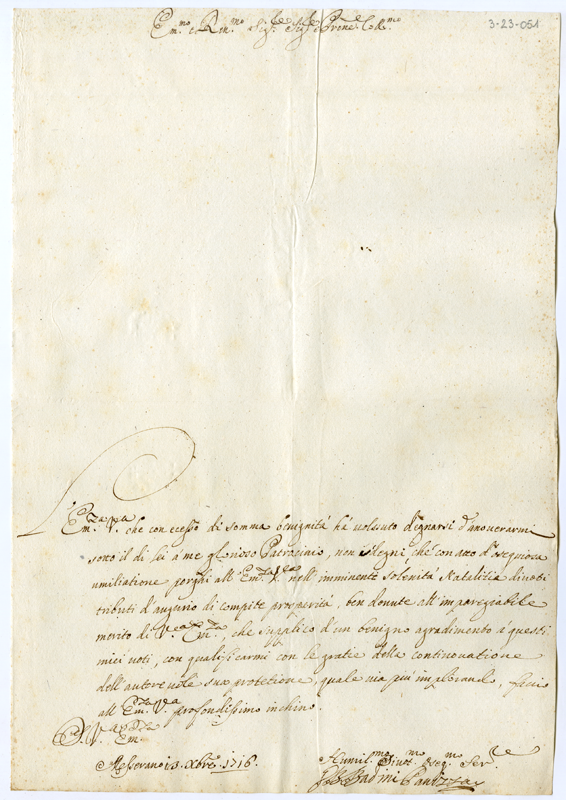 3-23-051
Em.mo e Rev.mo Sig.re Sig.re Prone Col.mo
L'Em.za V.a che con ecesso di somma benignità hà volsuto degnarsi d'anoverarmi
sotto il di lei à me glorioso Patrocinio, non isdegni che con atto d'osequiosa
umiliatione porghi all'Em.za V.a nell'imminente solenità Natalizia divoti
tributi d'augurio di compite prosperità, ben dovute all'impareggiabile
merito di V.a Em.za, che supplico d'un benigno agradimento à questi
miei voti, con qualificarmi con le gratie della continovatione
dell'autorevole sua protetione, quale via più implorando, facio
all'Em.za V.a profondissimo inchino.
D. V.a Em.za
Messerano 13 Xbre 1716.
Humil.mo Divot.mo Oseq.mo Ser.e